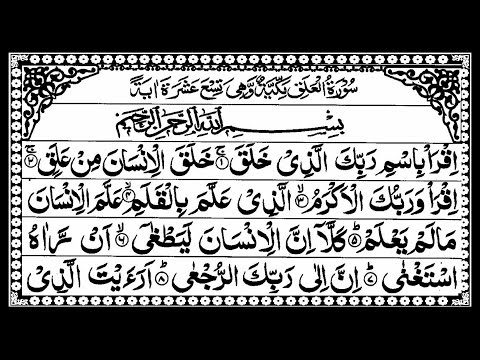 سُورَةُ الْعَلَقِ مَكِّيَّةٌ وَّهِيَ تِسْعَ عَشَرَةَ اٰيَةً
بِسْمِ اللّٰهِ الرَّحْمٰنِ الرَّحِيْمِ
اِقْرَاْ بِاسْمِ رَبِّكَ الَّذِيْ خَلَقَ ۚ﴿۱﴾ خَلَقَ الْاِنْسَانَ مِنْ عَلَقٍ ۚ﴿۲﴾
اِقْرَاْ وَرَبُّكَ الْاَكْرَمُ ۙ﴿۳﴾ الَّذِيْ عَلَّمَ بِالْقَلَمِ ۙ﴿۴﴾ عَلَّمَ الْاِنْسَانَ
مَا لَمْ يَعْلَمْ ؕ﴿۵﴾ كَلَّاۤ اِنَّ الْاِنْسَانَ لَيَطْغٰۤى ۙ﴿۶﴾ اَنْ رَّاٰهُ
اسْتَغْنٰى ؕ﴿۷﴾ اِنَّ اِلٰى رَبِّكَ الرُّجْعٰى ؕ﴿۸﴾ اَرَءَيْتَ الَّذِيْ